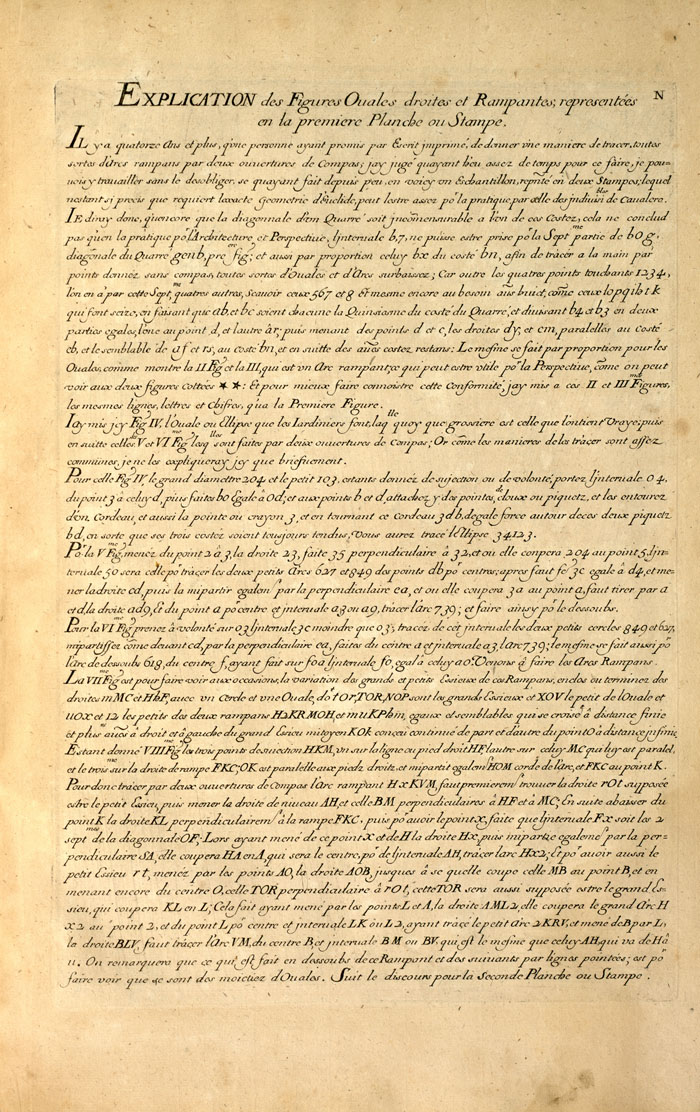 EXPLICATION des Figures Ouales droites et Rampantes, representées N
en la premiere Planche ou Stampe.
IL y a quatorze Ans et plus, qu'vne personne ayant promis par Escrit imprimé, de donner vne maniere de tracer, toutes
sortes d'Arcs rampans par deux ouuertures de Compas; jay jugé quayant bieu assez de temps pour ce faire, je pou=
uois y trauailler sans le desobliger, se quayant fait depuis peu, en voicy vn Echantillon, en deux Stampes; lequel
nestant si precis que requiert laxacte Geometrie d'Euclide, peut lestre assez po la pratique par celle des de Caualero.
IE diray donc, qu'encore que la diagonnale d'vn Quarré soit jncomensurable a l'vn de ces Costez, cela ne conclud
pas qu'en la pratique po l'Architecture, et Perspectiue, ljnteruale b,7, ne puisse estre prise po la Sept.me partie de b0g,
diagonale du Quarre genb, pre.me fig; et aussi par proportion celuy bx du costé bn, afin de tràcer a la main par
points donnez sans compas, toutes sortes d'Ouales et d'Arcs surbaissez; Car outre les quatres points touchants 1234,
l'on en à par cette Sept.me quatres autres, Scauoir ceux 567 et 8 Et mesme encore au besoin autres huict, cõme ceux lopqihtk
qui font seize, en faisant que ab, et bc soient chacune la Quinsiesme du costé du Quarré, et diuisant b4 et b3 en deux
parties egales, lvne au point d, et lautre àr, puis menant des points d et c, les droites dy, et cm, paralelles au costé
eb, et le semblable de af et rs, au coste bn, et en suitte des autres costez restans: Le mesme se fait par proportion pour les
Ouales, comme montre la II Fig et la III, qui est vn Arc rampant, ce qui peut estre vtile po la Perspectiue, cõme on peut
voir aux deux figures cottées ★ ★: Et pour mieux faire connoistre cette Conformité, jay mis a ces II et III.me Figures,
les mesmes lignes, lettres et Chifres, qu'a la Premiere Figure.
Iay mis jcy Fig IV. l'Ouale ou Ellipse que les Iardiniers font, laq.lle quoy que grossiere est celle que l'ontient Vraye; puis
en suitte celles V.me et VI.me Fig lesq.lles sont faites par deux ouuertures de Compas; Or cõme les manieres de les tràcer sont assez
communes, je ne les expliqueray jcy que briefuement.
Pour celle Fig IV, le grand diamettre 204 et le petit 103, estants donnez de sujection ou de volonté, portez ljnteruale 04,
du point 3 à celuy d, puis faites b0 Egale à 0d; et aux points b et d attachez y des pointes, de cloux ou piquetz, et les entourez
d'vn Cordeau, et aussi la pointe ou crayon 3, et en tournant ce Cordeau 3db, degale force autour deces deux piquetz
bd, en sorte que ses trois costez soient tousjours tendus, Vous aurez tracé lEllipse 34123.
Po la V.me Fig, menez du point 2 à 3, la droite 23, faite 35 perpendiculaire à 32, et ou elle coupera 204 au point 5, ljn=
teruale 50 sera celle po tràcer les deux petits Arcs 627 et 849 des points db po centres; apres faut fe 3c egale à d4, et me=
ner la droite cd, puis la mipartir egalem.t par la perpendiculaire ea, et ou elle coupera 3a au point a, faut tirer par a
et d, la droite ad9, & du point a po centre et jnteruale a3 ou a9, tràcer l'àrc 739; et faire ainsy po le dessoubs.
Pour la VI.me Fig prenez à volonté sur 03 ljnteruale 3c moindre que 03, tracez de cet jnteruale les deux petits cercles 849 et 627,
mipartissez cõme deuant cd, par la perpendiculaire ea, faites du centre a et jnteruale a3, l'arc 739; le mesme se fait aussi po
l'àrc de dessoubs 618, du centre f, ayant fait sur f0a ljnteruale f0, egal a celuy a0. Venons à faire les Arcs Rampans.
La VII.me Fig est pour faire voir aux occasions, la variation des grands et petits Essieux de ces Rampans, enclos ou terminez des
droites mMC et HhF, auec vn Cercle et vne Ouale, dot rOr, TOR, NOP sont les grands Essieux et XOV le petit de l'Ouale et
uox et 12 les petits des deux rampans H2KRMOH, et muKPhm, egaux et semblables qui se croisēt à distance finie
et plus autres à droit et à gauche du grand Essieu mitoyen KOk conceu continué de part et d'autre du point O à distance jnfinie.
Estant donné VIII.me Fig les trois points de sujection HKM, vn sur la ligne ou pied droit HF, lautre sur celuy MC qui luy est paralel,
et le trois.me sur la droite de rampe FKC; OK est paralelle aux piedz droitz, et mipartit egalem.t HOM corde de l'àrc, et FKC au point K.
Pour donc tràcer par deux ouuertures de Compas l'Arc rampant HxKVM, faut premierem.t trouuer la droite rOt supposée
estre le petit Essieu, puis mener la droite de niueau AH, et celle BM perpendiculaires à HF et à MC; En suite abaisser du
point K la droite KL perpendiculairem.t à la rampe FKC. puis po auoir le point X, faite que ljnteruale FX soit les 2
sept.mes de la diagonnale OF; Lors ayant mené de ce point x et de H la droite Hx, puis impartie egaleme.t par la per=
pendiculaire SA, elle coupera HA en A, qui sera le centre, po de ljnteruale AH, tràcer l'arc Hx2; Et po auoir aussi le
petit Essieu rt, menez par les points AO, la droite AOB, jusques à se quelle coupe celle MB au point B, et en
menant encore du centre O, celle TOR perpendiculaire à rOt, cette TOR sera aussi supposée estre le grand Es=
sieu, qui coupera KL en L; Cela fait ayant mené par les points L et A, la droite AML2, elle coupera le grand Arc H
X2 au point 2, et du point L po centre et jnteruale LK ou L2, ayant tràcé le petit Arc 2KRV, et mené de B par L,
la droite BLV, faut tràcer l'Arc VM, du centre B et jnteruale BM ou BV, qui est le mesme que celuy AH, qui va de H à
u. On remarquera que ce qui est fait en dessoubs de ce Rampant et des suiuants par lignes pointées; est po
faire voir que ce sont des moictiez d'Ouales. Suit le discours pour la Seconde Planche ou Stampe.